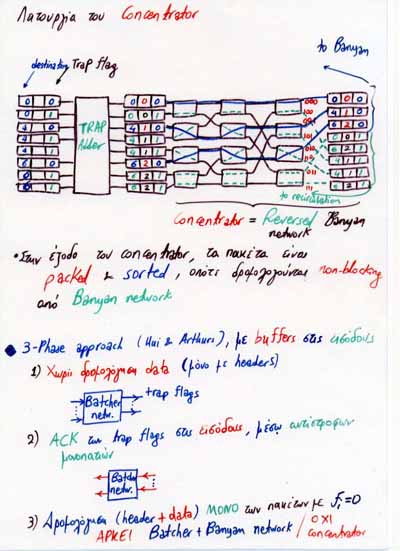 Λειτουργία του Concentrator
to Banyan
destination Trap flag
TRAP Adder
000
001
to recirculation
Concentrator = Reversed Banyan
network
• Στην έξοδο του concentrator, τα πακέτα είναι
packed & sorted, οπότε δρομολογούνται non-blocking
από Banyan network
3-Phase approach (Hui & Arthurs), με buffers στις εισόδους
1) Χωρίς δρομολόγηση data (μόνο με headers)
Batcher
netw.
+trap flags
2) ACK των trap flags στις εισόδους, μέσω αντίστροφων
μονοπατιών
Batch
netw.
3) Δρομολόγηση (header + data) ΜΟΝΟ των πακέτων με Fi=0
ΑΡΚΕΙ Batcher + Banyan network / ΟΧΙ concentrator